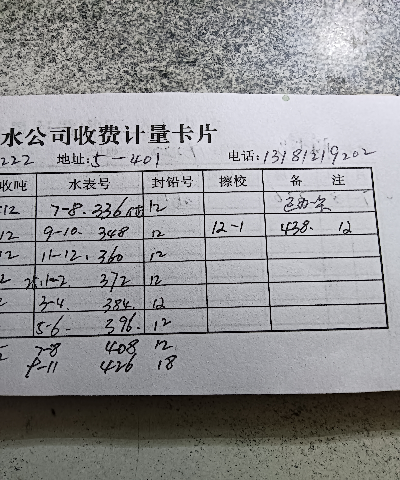 水公司收费计量卡片
222 地址:5-401 电话:13181219202
收吨 水表号 封铅号 擦校 备 注
12 7-8. 336 12
12 9-10. 348 12 12-1 438. 12
12 11-12. 360 12
2 25.1-2 372 12
3-4. 384. 12
5-6. 396. 12
7-8 408 12
9-11 426 18